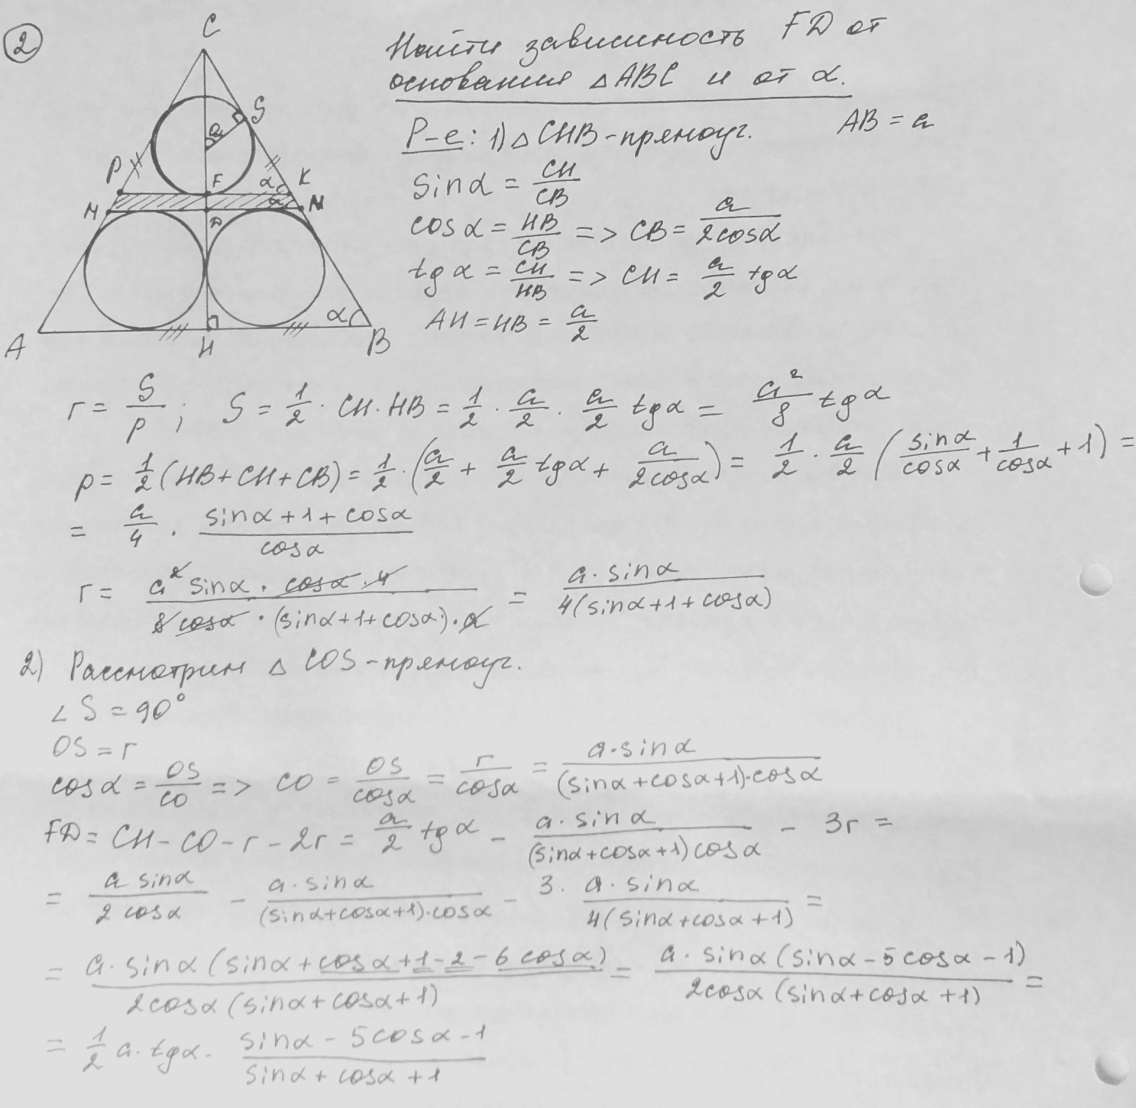 2
C
Найти зависимость FD от
основания △ABC и от α.
S
P-е: 1) △CHB-прямоуг. AB = a
O
P
F
α
K
sinα = CH/CB
M
D
α
N
cosα = HB/CB => CB = a/2cosα
tgα = CH/HB => CH = a/2 tgα
AH = HB = a/2
A
H
α
B
r = S/p; S = 1/2 · CH · HB = 1/2 · a/2 · a/2 tgα = a²/8 tgα
p = 1/2 (HB + CH + CB) = 1/2 · (a/2 + a/2 tgα + a/2cosα) = 1/2 · a/2 (sinα/cosα + 1/cosα + 1) =
= a/4 · (sinα + 1 + cosα)/cosα
r = a² sinα · cosα · 4/8 cosα · (sinα + 1 + cosα) · a = a · sinα/4(sinα + 1 + cosα)
2) Рассмотрим △ COS-прямоуг.
∠ S = 90°
OS = r
cosα = OS/CO => CO = OS/cosα = r/cosα = a · sinα/(sinα + cosα + 1) · cosα
FD = CH - CO - r - 2r = a/2 tgα - a · sinα/(sinα + cosα + 1) cosα - 3r =
= a sinα/2 cosα - a · sinα/(sinα + cosα + 1) · cosα - 3 · a · sinα/4(sinα + cosα + 1) =
= a · sinα (sinα + cosα + 1 - 2 - 6 cosα)/2cosα (sinα + cosα + 1) = a · sinα (sinα - 5cosα - 1)/2cosα (sinα + cosα + 1) =
= 1/2 a · tgα · sinα - 5cosα - 1/sinα + cosα + 1